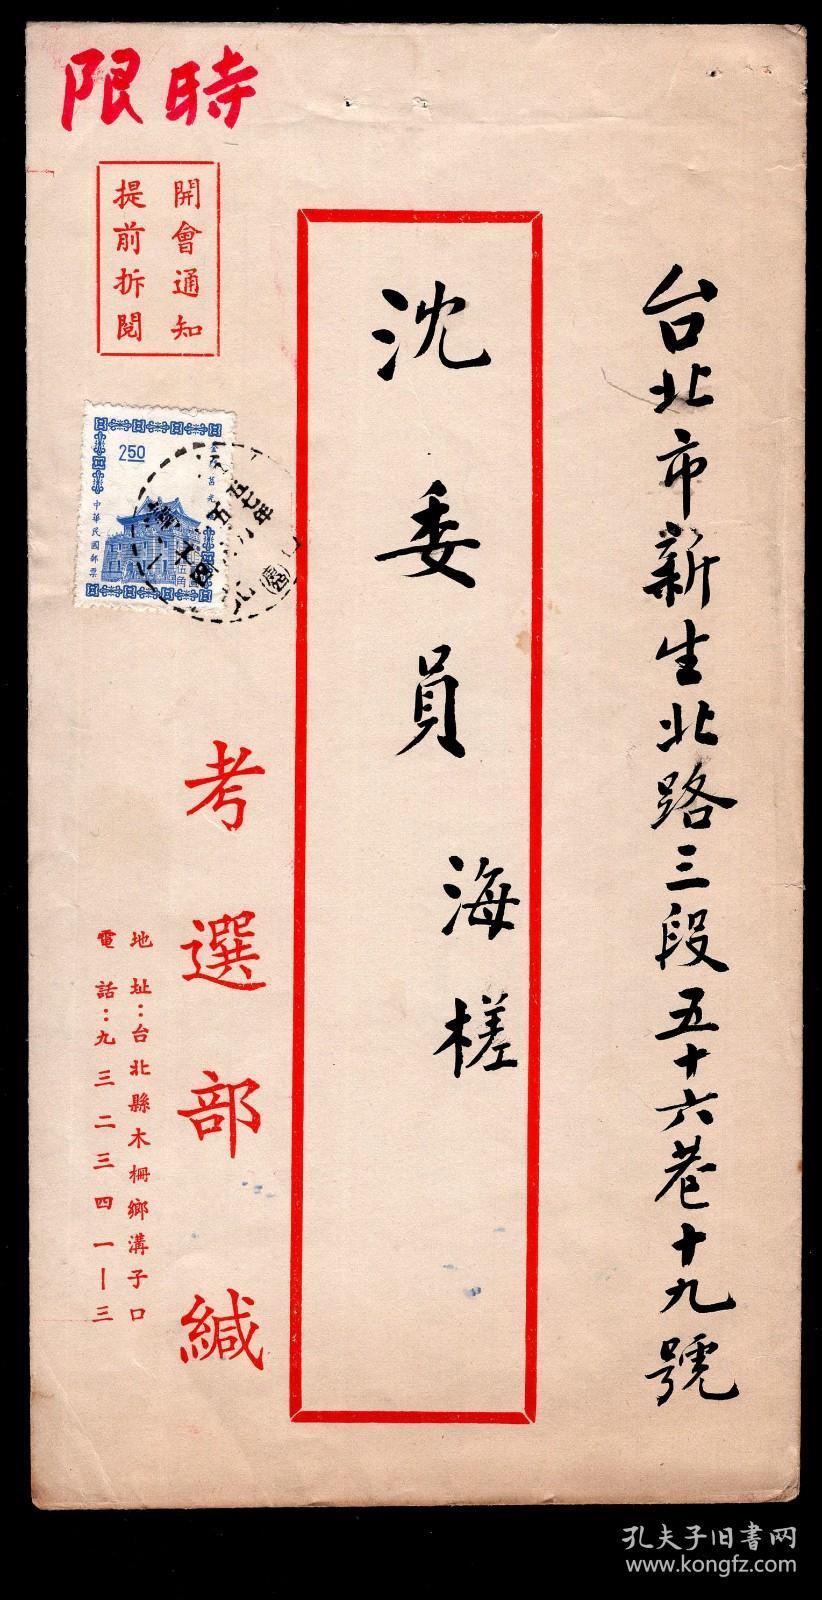 限時
開會通知
提前拆閱
台北市新生北路三段五十六巷十九號
沈委員 海槎
250
中華民國郵票
五七年
考選部緘
地址：台北縣木柵鄉溝子口
電話：九三二三四一—三
孔夫子旧书网
www.kongfz.com